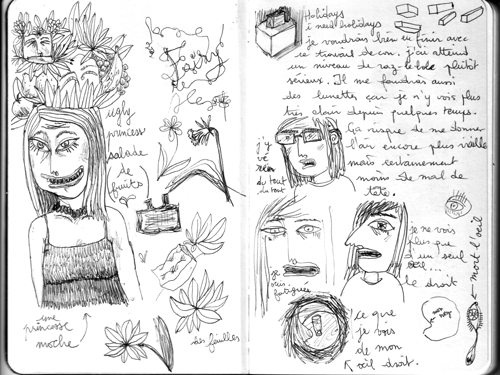 ugly
princess
salade
de
fruits
une
princesse
moche
des feuilles
Holidays
i need holidays
je voudrais bien en finir avec
ce travail de con. j'ai atteind
un niveau de raz-le-bole plutôt
sérieux. Il me faudrais aussi
des lunettes car je n'y vois plus
très clair depuis quelques temps.
Ça risque de me donner
l'air encore plus vieille
mais certainement
moins de mal de
tête.
j'y
vé
rien
du tout
du tout
je
suis
fatiguée
je ne vois
plus que
d'un seul
œil...
le droit
mort l'œil
ce que
je vois
de mon
œil droit.